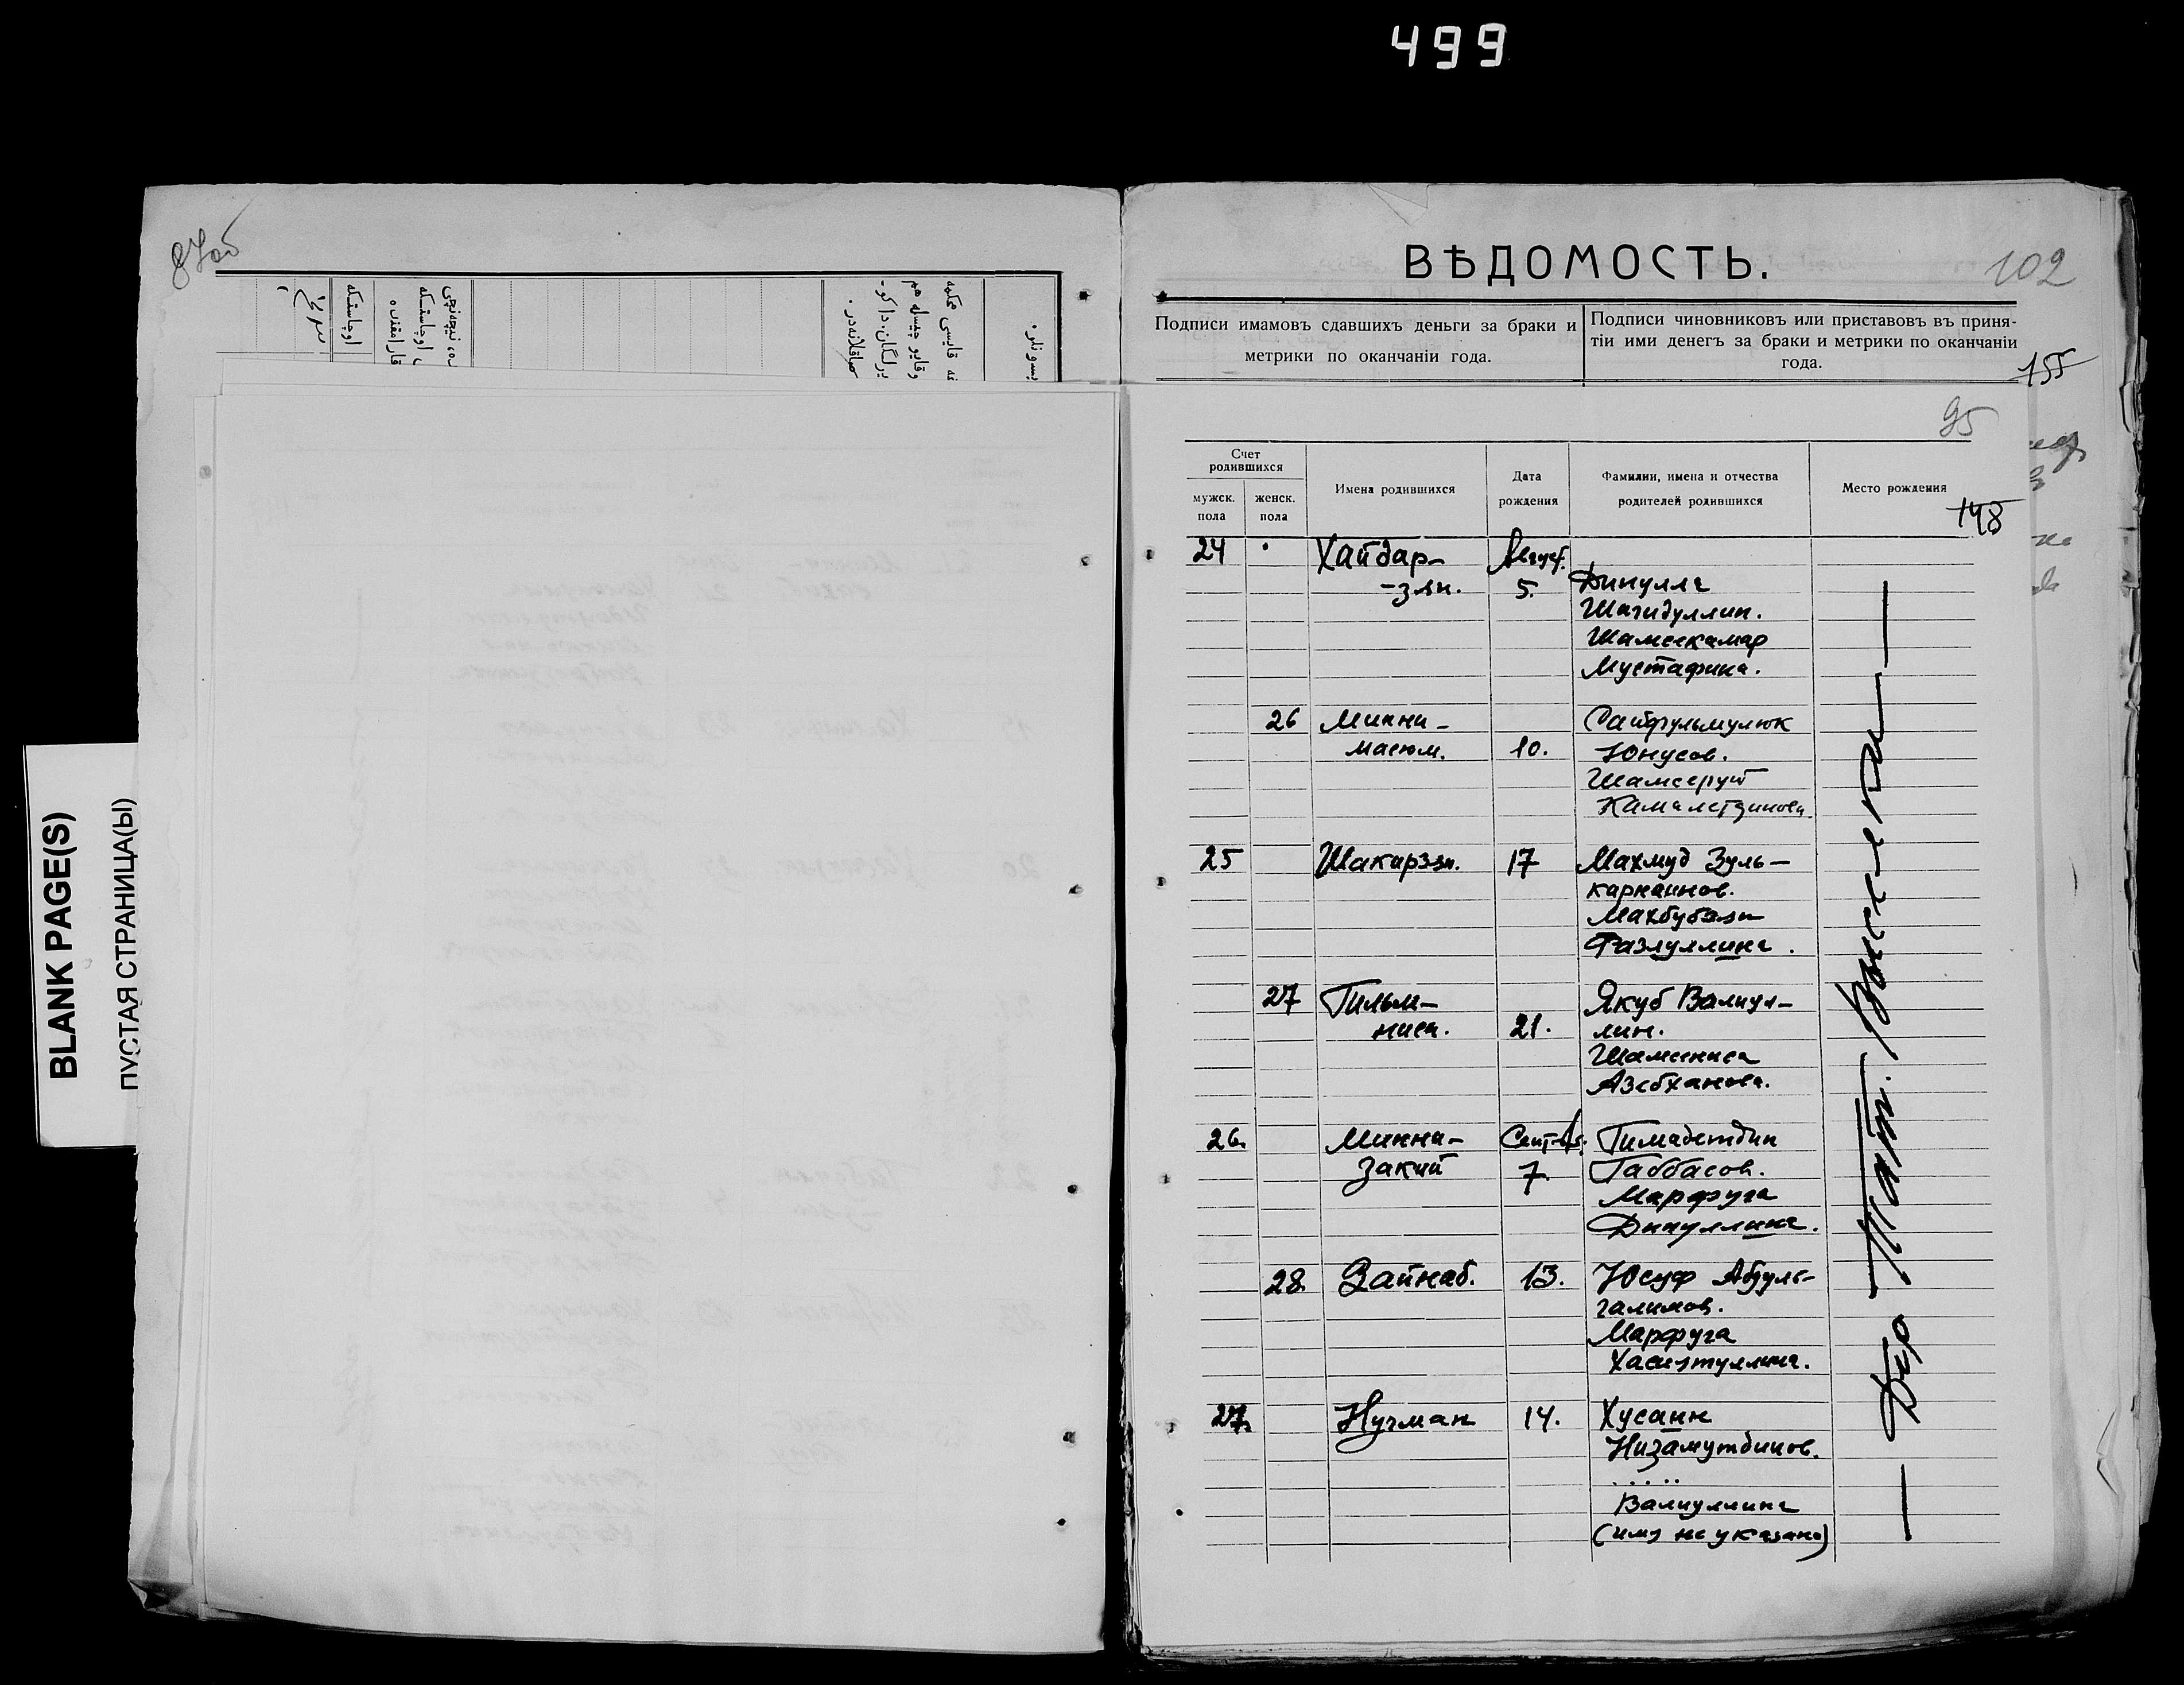 499
87об
ВѢДОМОСТЬ.
102
Подписи имамовъ сдавшихъ деньги за браки и
метрики по окончаніи года.
Подписи чиновниковъ или приставовъ въ приня-
тіи ими денегъ за браки и метрики по окончаніи
года.
155
95
Счет
родившихся
мужск.
пола
женск.
пола
Имена родившихся
Дата
рождения
Фамилии, имена и отчества
родителей родившихся
Место рождения
148
24 Хайдар- Август.
-зян. 5. Динулла
Шагидуллин.
Шамсекамар
Мустафина.
26 Минни- Сайфульмулюк
масюм. 10. Юнусов.
Шамсеруй
Камалетдинова.
25 Шакирзян. 17 Махмуд Зуль-
карнаинов.
Махбубзян
Фазлуллина.
27 Гильм- Якуб Валиул-
ниса. 21. лин.
Шамсениса
Азебханова.
26. Минна- Сентябр. Гимадетдин
закий 7. Габбасов.
Марфуга
Динуллина.
28. Зайнаб. 13. Юсуф Абдуль-
галимов.
Марфуга
Хасиятуллина.
27. Нугман 14. Хусаин
Низамутдинов.
.....
Валиуллина
(имя не указано)
— Дер. Тат. —
BLANK PAGE(S)
ПУСТАЯ СТРАНИЦА(Ы)